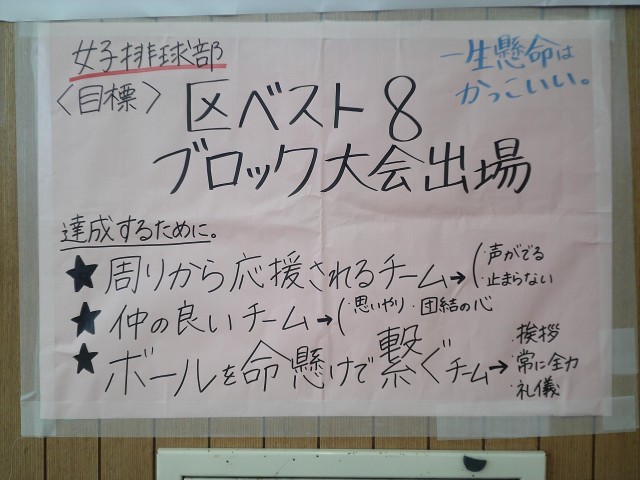 女子排球部
一生懸命は
かっこいい。
〈目標〉
区ベスト8
ブロック大会出場
達成するために。
★周りから応援されるチーム→(・声がでる
・止まらない
★仲の良いチーム→(・思いやり・団結の心
★ボールを命懸けで繋ぐチーム→・挨拶
・常に全力
・礼儀